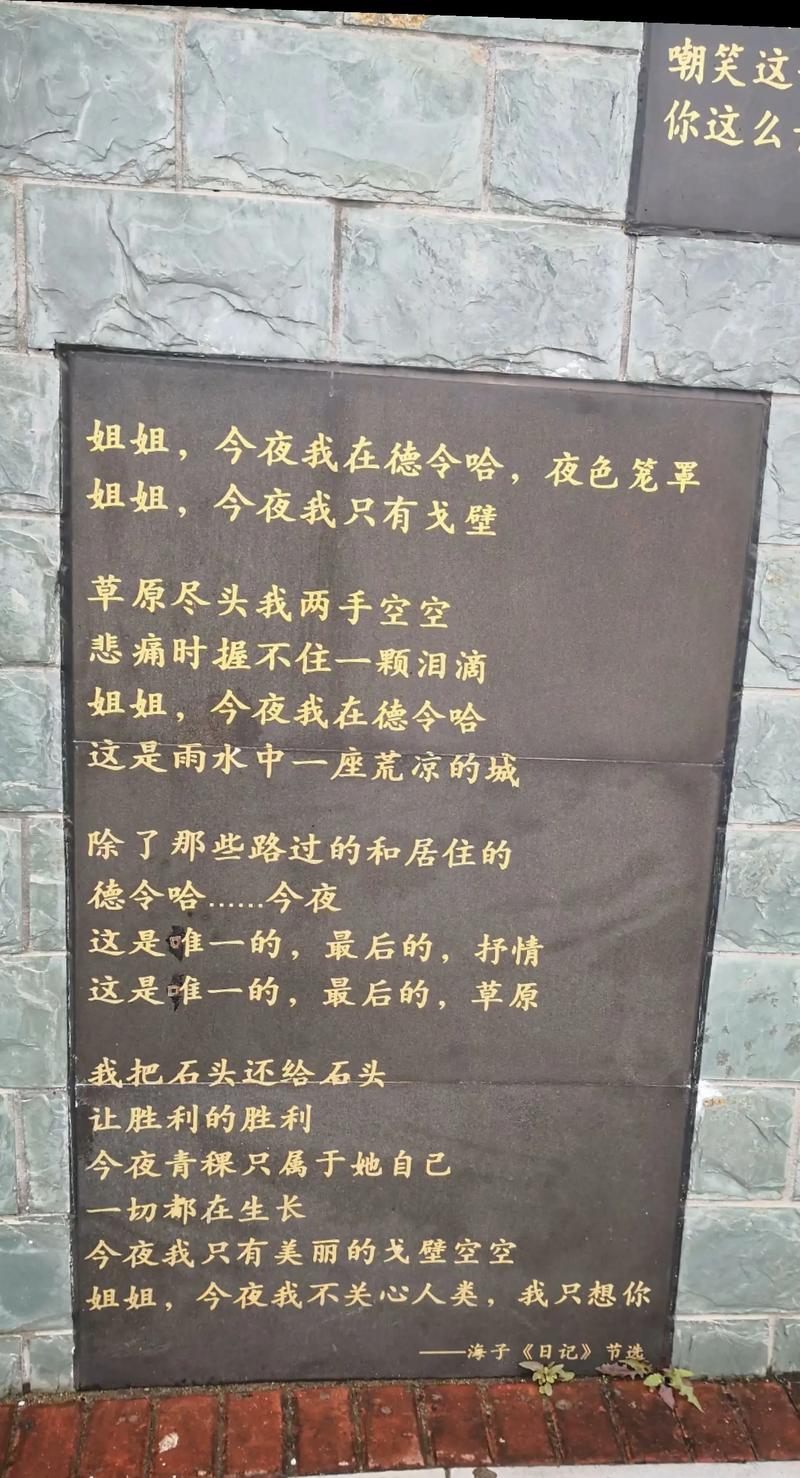 嘲笑这
你这么
姐姐，今夜我在德令哈，夜色笼罩
姐姐，今夜我只有戈壁
草原尽头我两手空空
悲痛时握不住一颗泪滴
姐姐，今夜我在德令哈
这是雨水中一座荒凉的城
除了那些路过的和居住的
德令哈……今夜
这是唯一的，最后的，抒情
这是唯一的，最后的，草原
我把石头还给石头
让胜利的胜利
今夜青稞只属于她自己
一切都在生长
今夜我只有美丽的戈壁空空
姐姐，今夜我不关心人类，我只想你
——海子《日记》节选